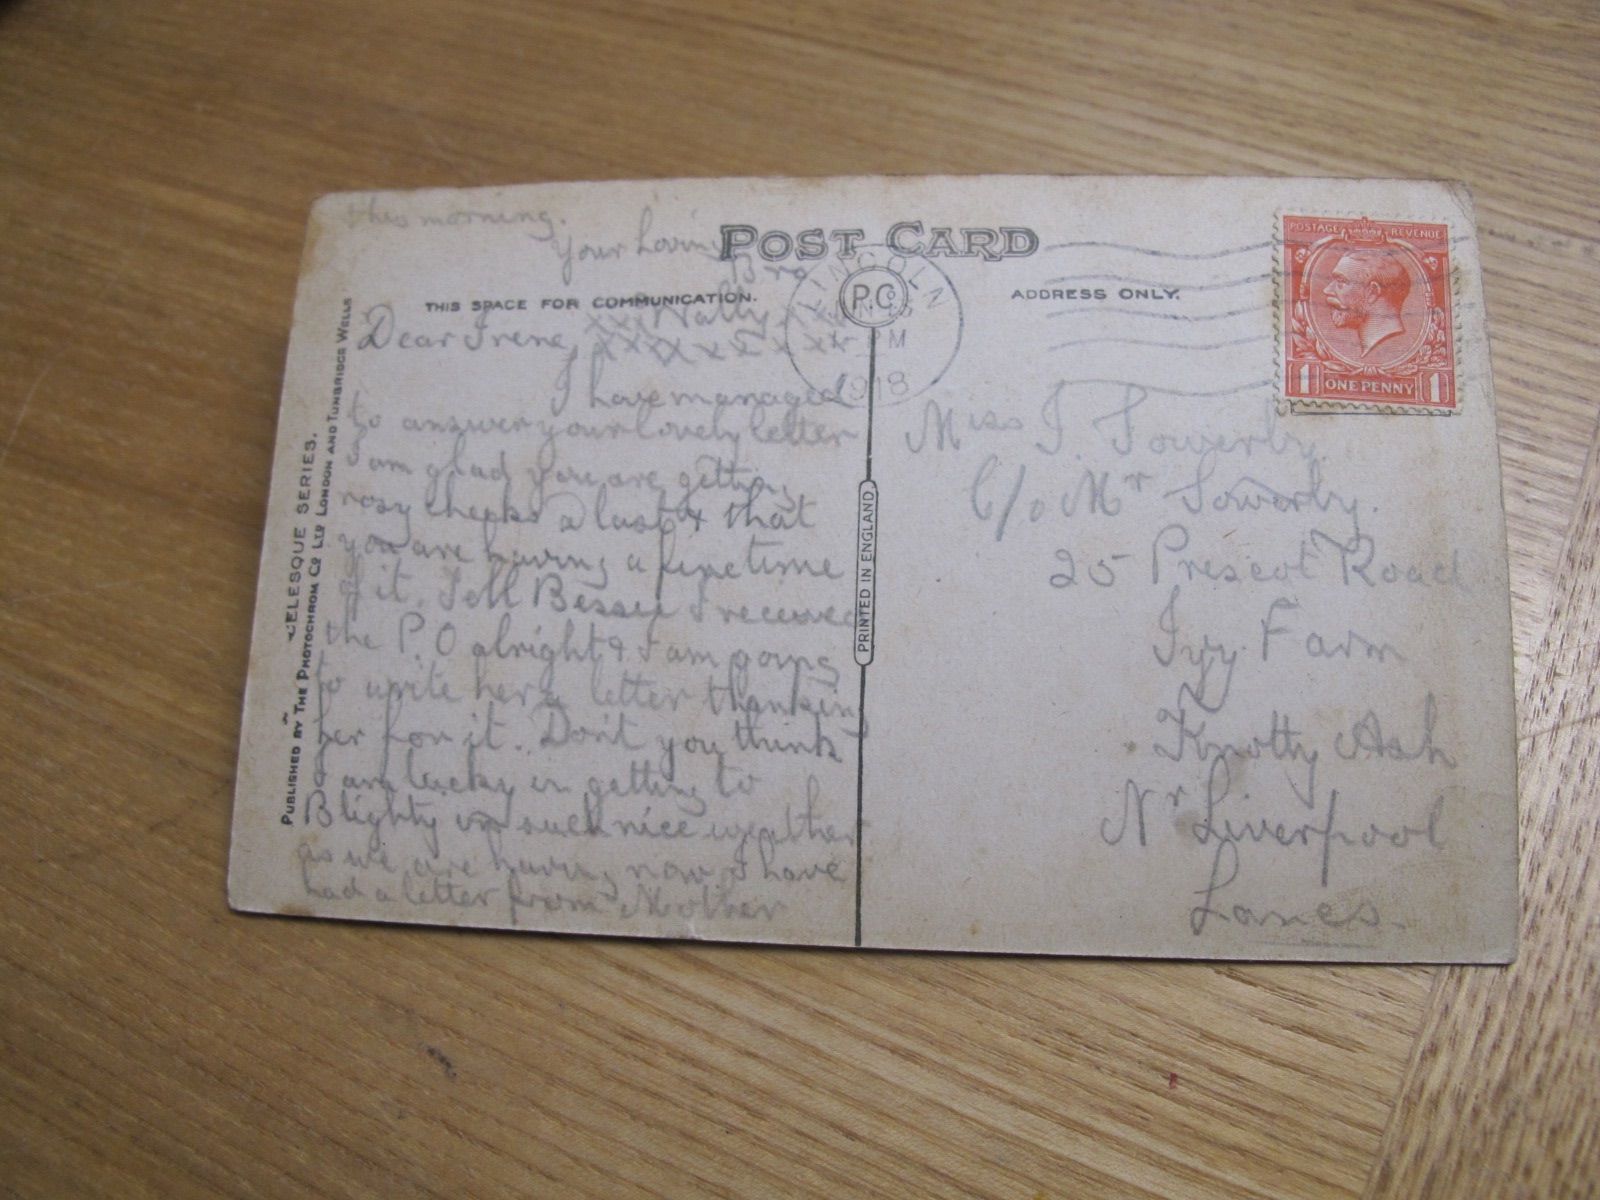 POST CARD
P.C.
THIS SPACE FOR COMMUNICATION.
ADDRESS ONLY.
LINCOLN
PM
1918
POSTAGE REVENUE
1 ONE PENNY 1
Dear Irene,
I have managed
to answer your lovely letter
I am glad you are getting
rosy cheeks a last & that
you are having a fine time
of it. Tell Bessie I received
the P.O alright & I am going
to write her a letter thanking
her for it. Don't you think
I am lucky in getting to
Blighty in such nice weather
as we are having now. I have
had a letter from Mother
this morning.
Your Loving
Bro
xxx Wally xxx
Miss I. Sowerby.
C/o Mr Sowerby.
25 Prescot Road
Ivy Farm
Knotty Ash
Nr Liverpool
Lancs.
PRINTED IN ENGLAND.
CELESQUE SERIES.
PUBLISHED BY THE PHOTOCHROM CO LTD LONDON AND TUNBRIDGE WELLS